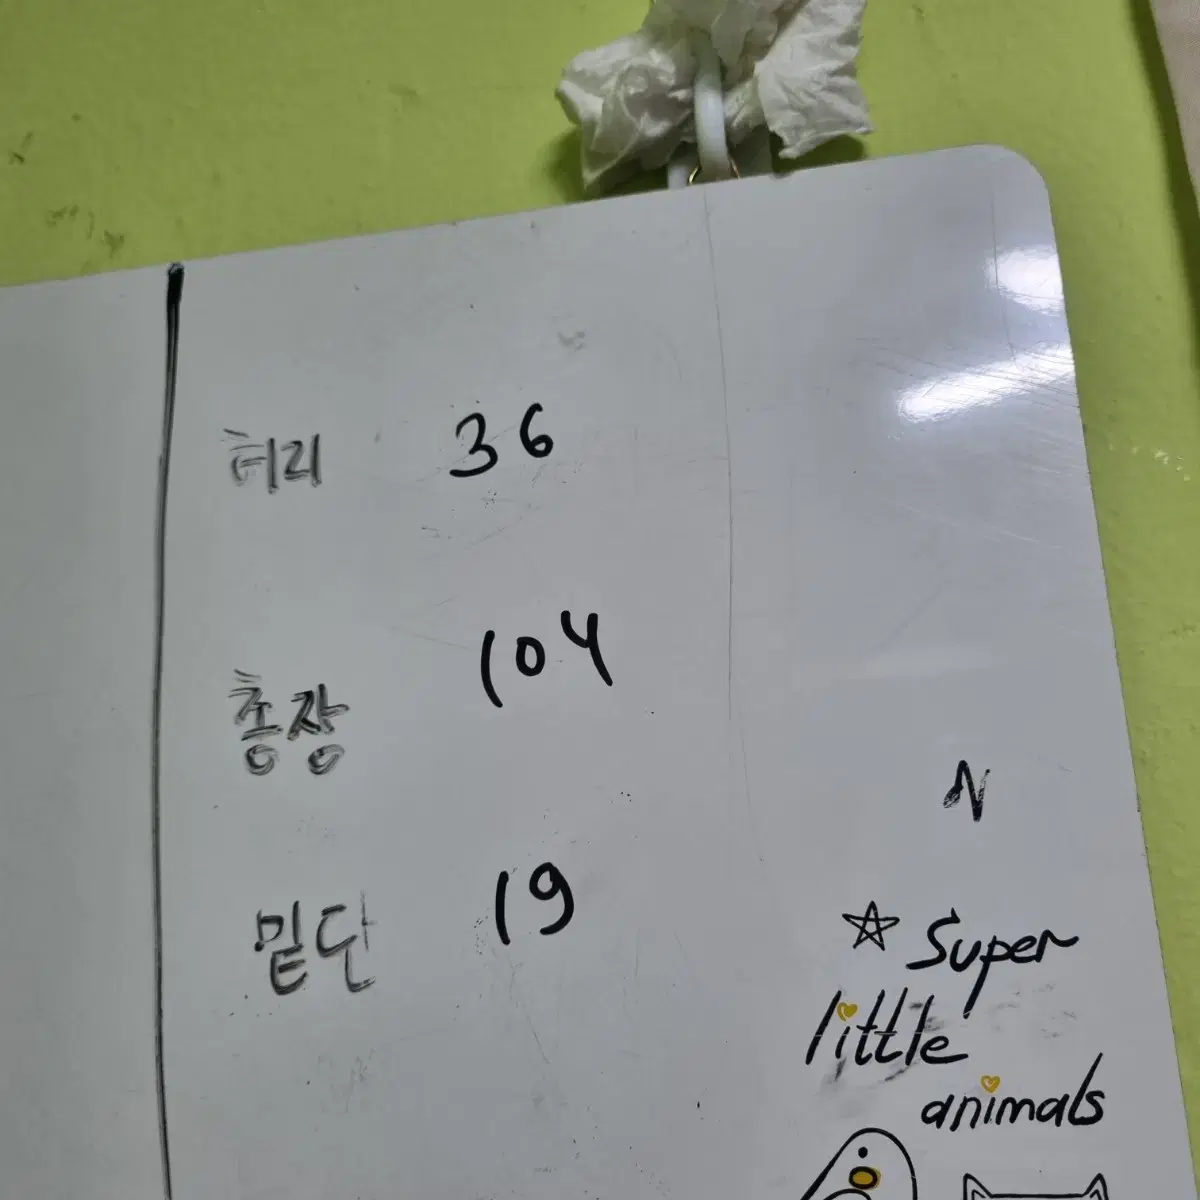 허리 36
총장 104
밑단 19
N
☆ Super
little
animals